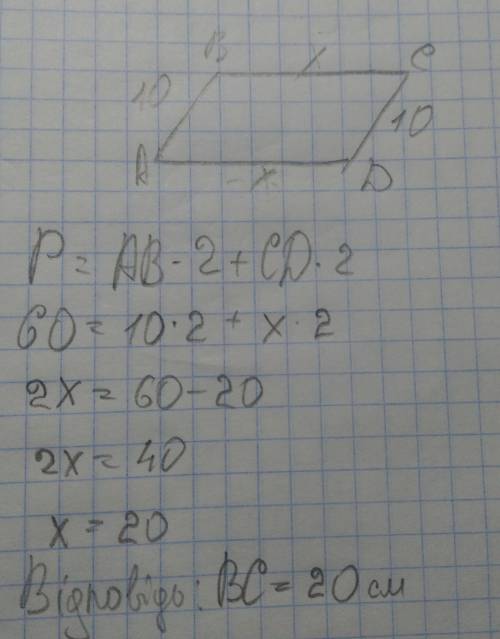 B x C
10 10
A x D
P = AB · 2 + CD · 2
60 = 10 · 2 + x · 2
2x = 60 - 20
2x = 40
x = 20
Відповідь: BC = 20 см